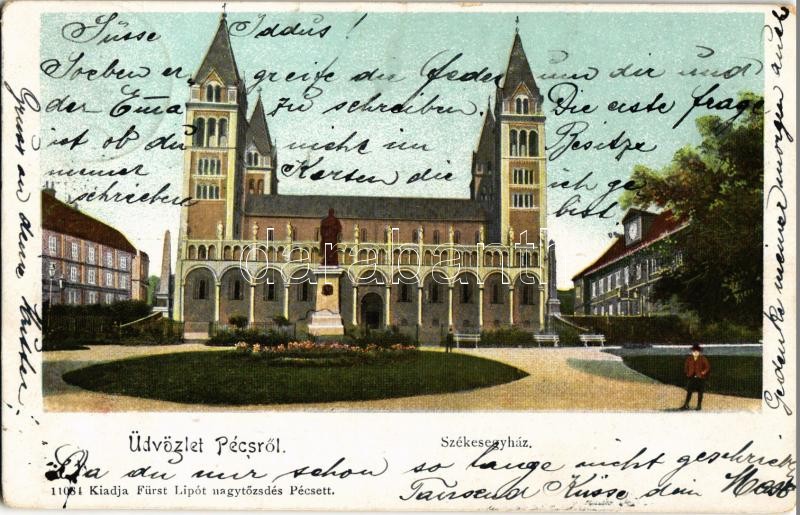 Süsse Iddus!
Soeben er greife die Feder um dir und
der Ema zu schreiben. Die erste frage
ist ob du nicht im Besitze
immer Karten die ich ge
schrieben bist.
Gruss an deine Mutter!
Gedenke meiner morgen auch
darabanth
Üdvözlet Pécsről.
Székesegyház.
Da du nur schon so lange nicht geschrieben
Tausend Küsse dein
11084 Kiadja Fürst Lipót nagytőzsdés Pécsett.